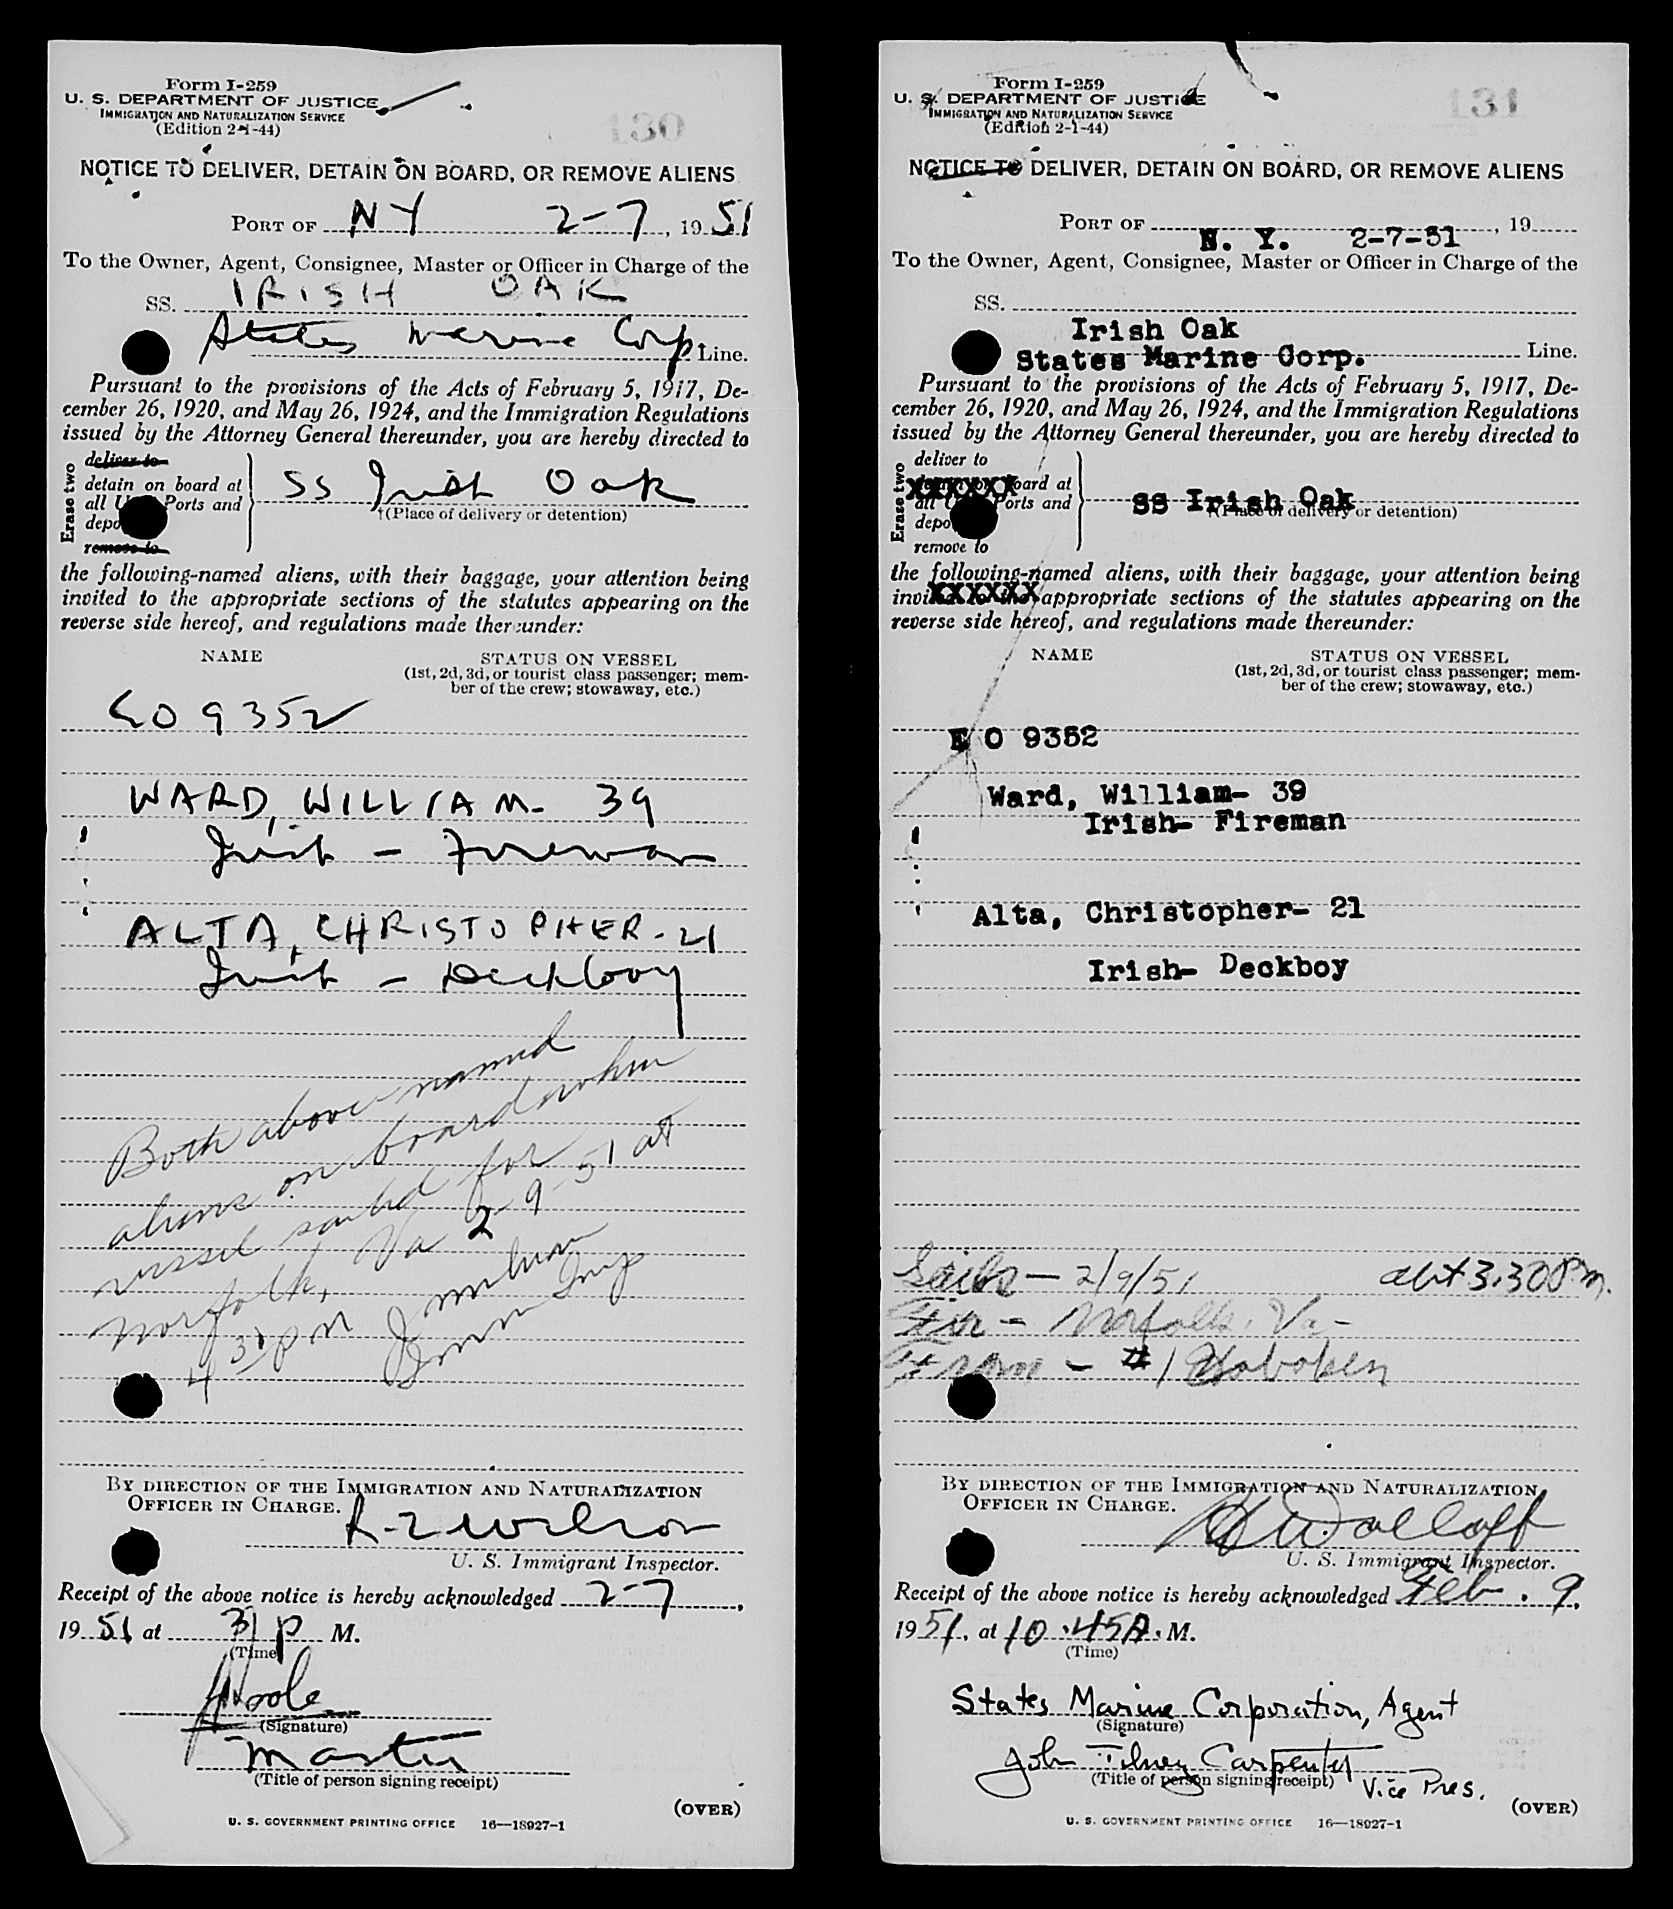 Form I-259
U. S. DEPARTMENT OF JUSTICE
IMMIGRATION AND NATURALIZATION SERVICE
(Edition 2-1-44)
130
NOTICE TO DELIVER, DETAIN ON BOARD, OR REMOVE ALIENS
PORT OF NY 2-7, 1951
To the Owner, Agent, Consignee, Master or Officer in Charge of the
SS. IRISH OAK
States Marine Corp. Line.
Pursuant to the provisions of the Acts of February 5, 1917, De-
cember 26, 1920, and May 26, 1924, and the Immigration Regulations
issued by the Attorney General thereunder, you are hereby directed to
Erase two
deliver to
detain on board at
all U Ports and
depo
remove to
SS Irish Oak
†(Place of delivery or detention)
the following-named aliens, with their baggage, your attention being
invited to the appropriate sections of the statutes appearing on the
reverse side hereof, and regulations made thereunder:
NAME STATUS ON VESSEL
(1st, 2d, 3d, or tourist class passenger; mem-
ber of the crew; stowaway, etc.)
EO 9352
WARD, WILLIAM - 39
Irish - Fireman
ALTA, CHRISTOPHER - 21
Irish - Deckboy
Both above named
aliens on board when
vessel sailed for
Norfolk, Va 2-9-51 at
4 30 PM
Imm Insp
BY DIRECTION OF THE IMMIGRATION AND NATURALIZATION
OFFICER IN CHARGE.
R. Z Wilson
U. S. Immigrant Inspector.
Receipt of the above notice is hereby acknowledged 2-7,
1951 at 31 P M.
(Time)
(Signature)
Master
(Title of person signing receipt)
(OVER)
U. S. GOVERNMENT PRINTING OFFICE 16—18927-1
Form I-259
U. S. DEPARTMENT OF JUSTICE
IMMIGRATION AND NATURALIZATION SERVICE
(Edition 2-1-44)
131
NOTICE TO DELIVER, DETAIN ON BOARD, OR REMOVE ALIENS
PORT OF N. Y. 2-7-51, 19
To the Owner, Agent, Consignee, Master or Officer in Charge of the
SS.
Irish Oak
States Marine Corp. Line.
Pursuant to the provisions of the Acts of February 5, 1917, De-
cember 26, 1920, and May 26, 1924, and the Immigration Regulations
issued by the Attorney General thereunder, you are hereby directed to
Erase two
deliver to
XXXXXX oard at
all U Ports and
depo
remove to
SS Irish Oak
†(Place of delivery or detention)
the following-named aliens, with their baggage, your attention being
invited to the appropriate sections of the statutes appearing on the
XXXXXX
reverse side hereof, and regulations made thereunder:
NAME STATUS ON VESSEL
(1st, 2d, 3d, or tourist class passenger; mem-
ber of the crew; stowaway, etc.)
E O 9352
Ward, William- 39
Irish- Fireman
Alta, Christopher- 21
Irish- Deckboy
Sails - 2/9/51 abt 3.30 P.m.
For - Norfolk. Va -
From - #1 Hoboken
BY DIRECTION OF THE IMMIGRATION AND NATURALIZATION
OFFICER IN CHARGE.
U. S. Immigrant Inspector.
Receipt of the above notice is hereby acknowledged Feb. 9,
1951, at 10.45 A. M.
(Time)
States Marine Corporation, Agent
(Signature)
John Tilney Carpenter Vice Pres.
(Title of person signing receipt)
(OVER)
U. S. GOVERNMENT PRINTING OFFICE 16—18927-1